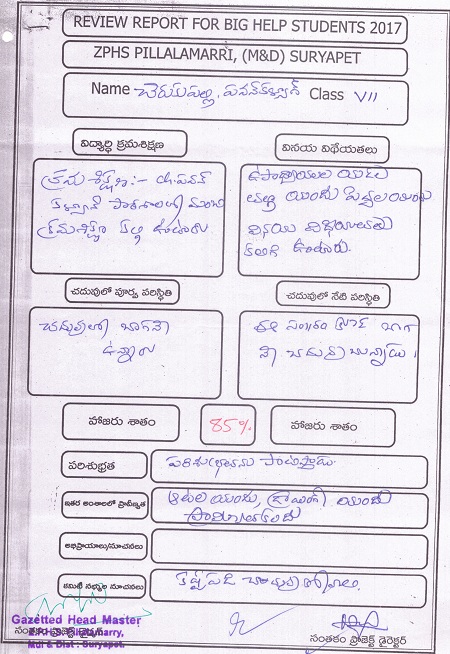 REVIEW REPORT FOR BIG HELP STUDENTS 2017
ZPHS PILLALAMARRI, (M&D) SURYAPET
Name చెరుకుపల్లి. పవన్‌కళ్యాణ్ Class VII
విద్యార్థి క్రమశిక్షణ
వినయ విధేయతలు
క్రమశిక్షణ:- Ch. పవన్
కళ్యాణ్ పాఠశాలలో మంచి
క్రమశిక్షణ కల్గి ఉంటాడు
ఉపాధ్యాయుల యెడల
యందు పెద్దలయందు
వినయ విధేయతలు
కలిగి ఉంటాడు.
చదువులో పూర్వ పరిస్థితి
చదువులో నేటి పరిస్థితి
చదువులో బాగానే
ఉన్నాడు
ఈ సంవత్సరం కూడా బాగా
నే చదువుతున్నాడు.
హాజరు శాతం
85%
హాజరు శాతం
పరిశుభ్రత
పరిశుభ్రతను పాటిస్తాడు
ఇతర అంశాలలో ప్రావీణ్యత
ఆటల యందు, డ్రాయింగ్ యందు
అభిప్రాయాలు/సూచనలు
కమిటి సభ్యుల సూచనలు
కష్టపడి చదువుకోవాలి.
Gazetted Head Master
Z.P.H.S. Pillalamarry,
Mdl & Dist : Suryapet.
సంతకం ప్రాజెక్ట్ డైరెక్టర్